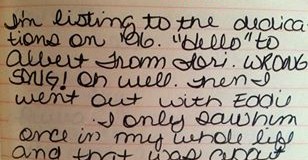 Im listing to the dedica-
tions on '96. "Hello" to
Albert from Lori. WRONG
SONG! Oh well. Then I
went out with Eddie
I only saw him
once in my whole life
and that was about